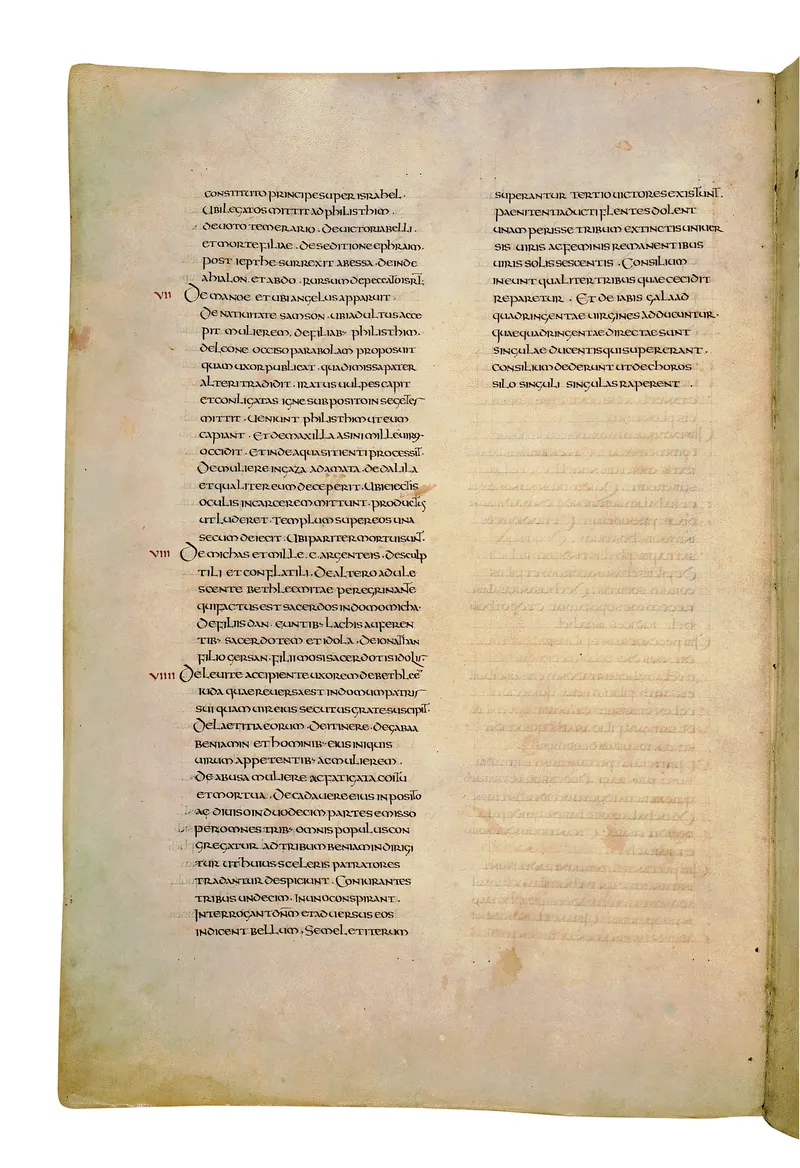 CONSTITUTO PRINCIPE SUPER ISRAHEL ·
UBI LEGATOS MITTIT AD PHILISTHIM ·
DE UOTO TEMERARIO · DE UICTORIA BELLI ·
ET MORTE FILIAE · DE SEDITIONE EPHRAIM ·
POST IEPTHE SURREXIT ABESSA · DEINDE
AHIALON · ET ABDO · RURSUM DE PECCATO ISRL̅;
VII DE MANOE ET UBI ANGELUS APPARUIT ·
DE NATIUITATE SAMSON · UBI ADULTUS ACCE
PIT MULIEREM, DE FILIAB· PHILISTHIM ·
DE LEONE OCCISO PARABOLAM PROPOSUIT
QUAM UXOR PUBLICAT · QUA DIMISSA PATER
ALTERI TRADIDIT · IRATUS UULPES CAPIT
ET CONLIGATAS IGNE SUBPOSITO IN SEGETES
MITTIT · UENIUNT PHILISTHIM UT EUM
CAPIANT · ET DE MAXILLA ASINI MILLE UIROS
OCCIDIT · ET INDE AQUA SITIENTI PROCESSIT·
DE MULIERE IN GAZA ADAMATA · DE DALILA
ET QUALITER EUM DECEPERIT · UBI EIECTIS
OCULIS IN CARCEREM MITTUNT · PRODUCTUS
UT LUDERET · TEMPLUM SUPER EOS UNA
SECUM DEIECIT · UBI PARITER MORTUI SUNT·
VIII DE MICHAS ET MILLE · C · ARGENTEIS · DE SCULP
TILI ET CONFLATILI · DE ALTERO ADULE
SCENTE BETHLEEMITAE PEREGRINANTE
QUI FACTUS EST SACERDOS IN DOMO MICHA·
DE FILIIS DAN · EUNTIB· LACHIS AUFEREN
TIB· SACERDOTEM ET IDOLA · DE IONATHAN
FILIO GERSAN · FILII MOSI SACERDOTIS IDOLIS·
VIIII DE LEUITE ACCIPIENTE UXOREM DE BETHLEE̅
IUDA QUAE REUERSA EST IN DOMUM PATRIS
SUI QUAM UIR EIUS SECUTUS GRATE SUSCIPIT·
DE LAETITIA EORUM · DE ITINERE · DE GABAA
BENIAMIN ET HOMINIB· EIUS INIQUIS
UIRUM APPETENTIB· AC MULIEREM ·
DE ABUSA MULIERE AC FATIGATA COITU
ET MORTUA · DE CADAUERE EIUS IN POSITO
AC DIUISO IN DUODECIM PARTES EMISSO
PER OMNES TRIB· OMNIS POPULUS CON
GREGATUR AD TRIBUM BENIAMIN DIRIGI
TUR UT HUIUS SCELERIS PATRATORES
TRADANTUR DESPICIUNT · CONIURANTES
TRIBUS UNDECIM · IN UNO CONSPIRANT ·
INTERROGANT DN̅M ET ADUERSUS EOS
INDICENT BELLUM · SEMEL ET ITERUM
SUPERANTUR TERTIO UICTORES EXISTUNT·
PAENITENTIA DUCTI FLENTES DOLENT
UNAM PERISSE TRIBUM EXTINCTIS UNIUER
SIS UIRIS AC FEMINIS REMANENTIBUS
UIRIS SOLIS SESCENTIS · CONSILIUM
INEUNT QUALITER TRIBUS QUAE CECIDIT
REPARETUR · ET DE IABIS GALAAD
QUADRINGENTAE UIRGINES ADDUCUNTUR·
QUAE QUADRINGENTAE DIRECTAE SUNT
SINGULAE DUCENTIS QUI SUPERERANT ·
CONSILIUM DEDERUNT UT DE CHOROS
SILO SINGULI SINGULAS RAPERENT ·